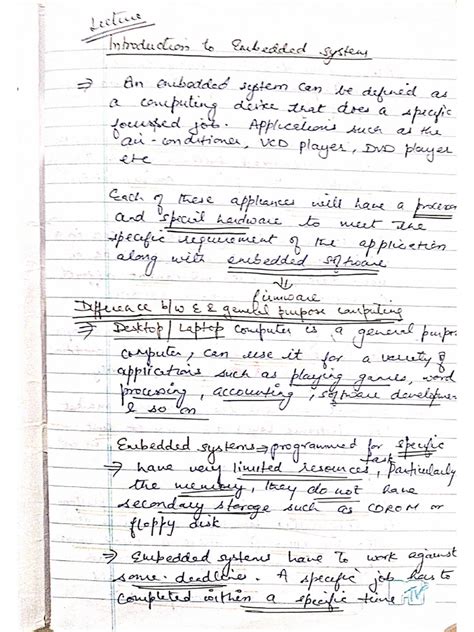 Lecture
Introduction to Embedded Systems
⇒ An embadded system can be defined as
a computing device that does a specific
focussed job. Applications such as the
air-conditioner, VCD player, DVD player
etc
Each of these appliances will have a processor
and special hardware to meet the
specific requirement of the application
along with embedded software
↓
firmware
Difference b/w E & general purpose computing
⇒ Desktop/Laptop computer is a general purpose
computer, can use it for a variety of
applications such as playing games, word
processing, accounting, software developmen
& so on
Embedded systems → programmed for specific
task
⇒ have very limited resources, particularly
the memory, they do not have
secondary storage such as CDROM or
floppy disk
⇒ Embedded systems have to work against
some deadlines. A specific job has to
completed within a specific time